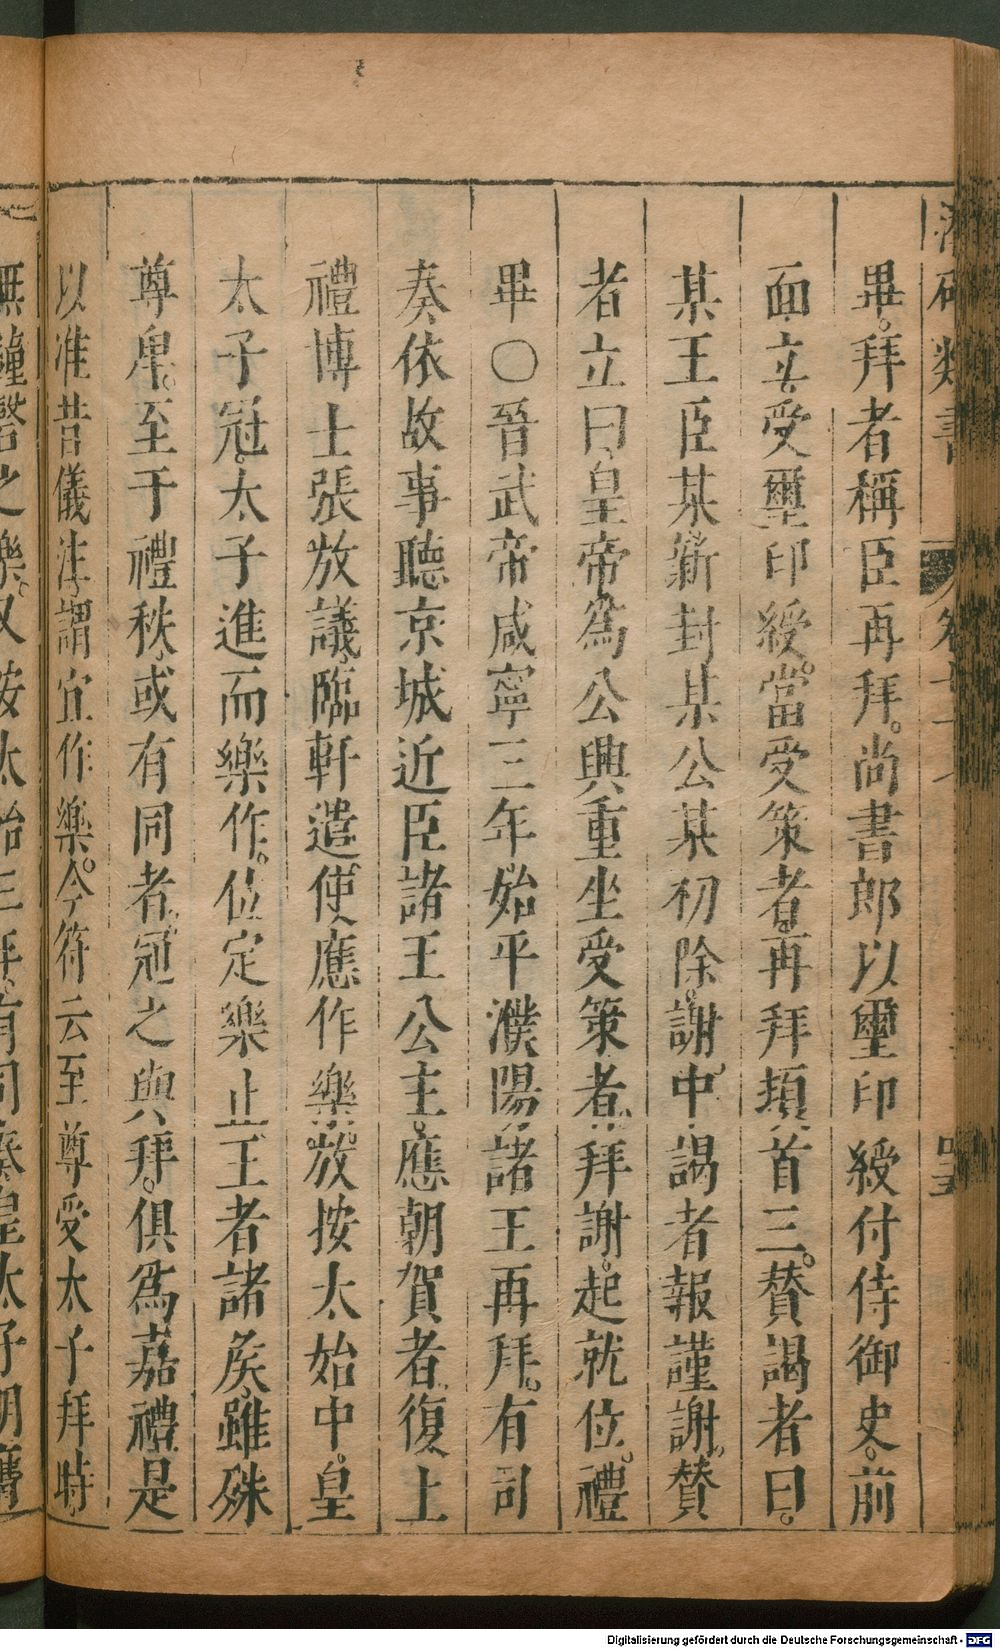 畢。拜者稱臣再拜。尚書郎以璽印綬付侍御史。前
面立受璽印綬。當受策者再拜頓首三。贊謁者曰。
某王臣某新封某公某初除。謝。中謁者報謹謝。贊
者立曰皇帝爲公興重坐受策者。拜謝。起就位。禮
畢〇晉武帝咸寧三年始平濮陽諸王再拜。有司
奏依故事聽京城近臣諸王公主應朝賀者復上
禮博士張放議臨軒遣使應作樂放按太始中。皇
太子冠。太子進而樂作。位定樂止王者諸矦雖殊
尊卑。至于禮秩。或有同者。冠之與拜。俱爲嘉禮是
以准昔儀注謂宜作樂。今符云至尊受太子拜時
無鐘磬之樂。又按太始三年有司奏皇太子明
類書
Digitalisierung gefördert durch die Deutsche Forschungsgemeinschaft - DFG